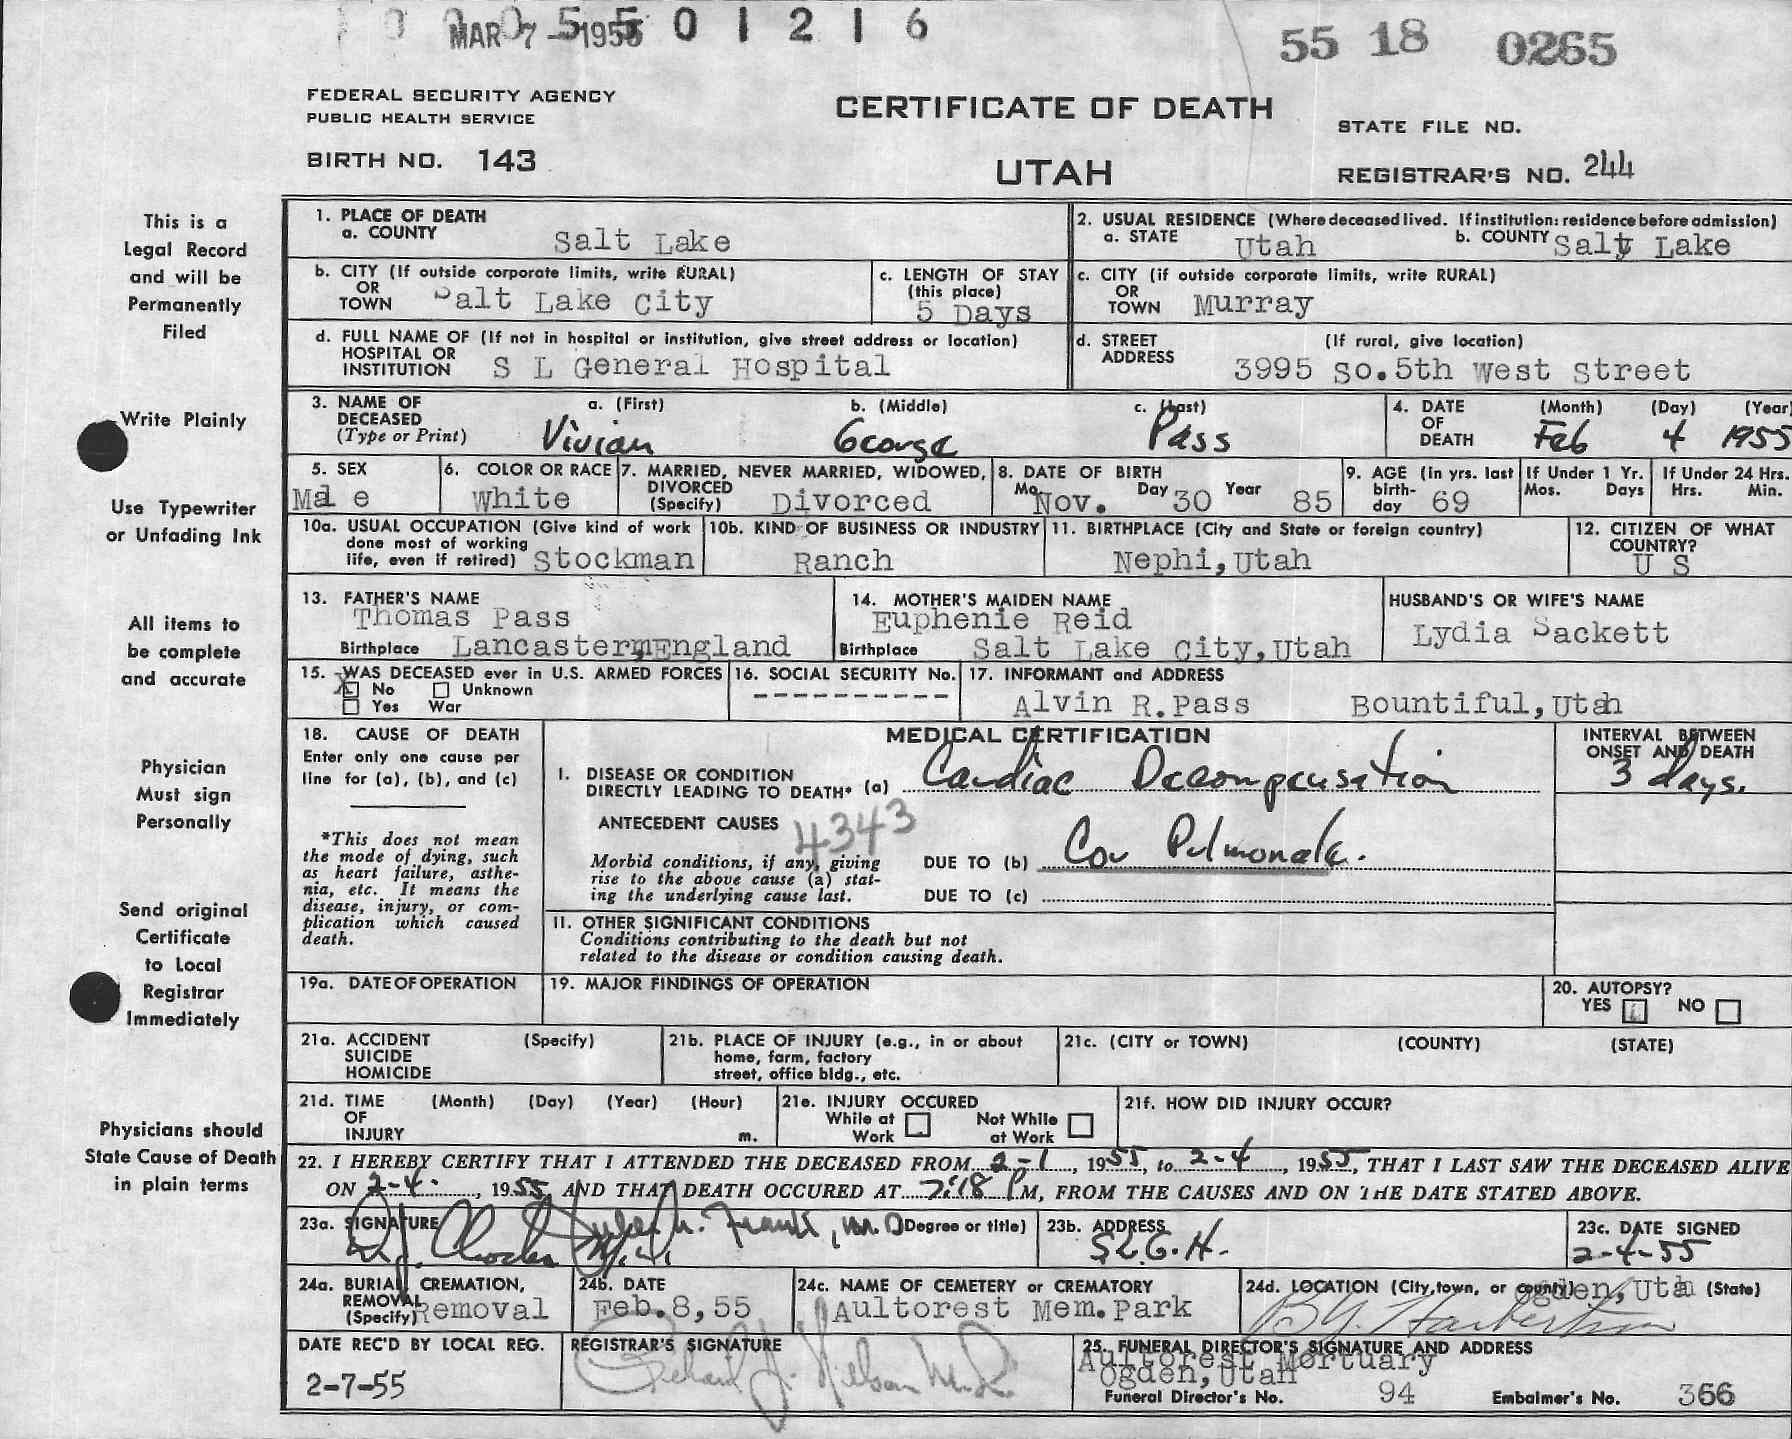 MAR 7 - 1955 0 1 2 1 6
55 18 0265
FEDERAL SECURITY AGENCY
PUBLIC HEALTH SERVICE
CERTIFICATE OF DEATH
STATE FILE NO.
BIRTH NO. 143
UTAH
REGISTRAR'S NO. 244
This is a
Legal Record
and will be
Permanently
Filed
Write Plainly
Use Typewriter
or Unfading Ink
All items to
be complete
and accurate
Physician
Must sign
Personally
Send original
Certificate
to Local
Registrar
Immediately
Physicians should
State Cause of Death
in plain terms
1. PLACE OF DEATH
a. COUNTY Salt Lake
2. USUAL RESIDENCE (Where deceased lived. If institution: residence before admission)
a. STATE Utah b. COUNTY Salt Lake
b. CITY (If outside corporate limits, write RURAL)
OR
TOWN Salt Lake City
c. LENGTH OF STAY
(this place)
5 Days
c. CITY (if outside corporate limits, write RURAL)
OR
TOWN Murray
d. FULL NAME OF (If not in hospital or institution, give street address or location)
HOSPITAL OR
INSTITUTION S L General Hospital
d. STREET (If rural, give location)
ADDRESS 3995 So.5th West Street
3. NAME OF DECEASED
(Type or Print)
a. (First) b. (Middle) c. (Last)
Vivian George Pass
4. DATE OF DEATH
(Month) (Day) (Year)
Feb 4 1955
5. SEX
Male
6. COLOR OR RACE
White
7. MARRIED, NEVER MARRIED, WIDOWED,
DIVORCED
(Specify) Divorced
8. DATE OF BIRTH
Mo. Nov. Day 30 Year 85
9. AGE (in yrs. last
birth-
day 69
If Under 1 Yr.
Mos. Days
If Under 24 Hrs.
Hrs. Min.
10a. USUAL OCCUPATION (Give kind of work
done most of working
life, even if retired) Stockman
10b. KIND OF BUSINESS OR INDUSTRY
Ranch
11. BIRTHPLACE (City and State or foreign country)
Nephi, Utah
12. CITIZEN OF WHAT
COUNTRY?
U S
13. FATHER'S NAME
Thomas Pass
Birthplace Lancaster,England
14. MOTHER'S MAIDEN NAME
Euphenie Reid
Birthplace Salt Lake City,Utah
HUSBAND'S OR WIFE'S NAME
Lydia Sackett
15. WAS DECEASED ever in U.S. ARMED FORCES
X No Unknown
Yes War
16. SOCIAL SECURITY No.
----------
17. INFORMANT and ADDRESS
Alvin R.Pass Bountiful,Utah
18. CAUSE OF DEATH
Enter only one cause per
line for (a), (b), and (c)
*This does not mean
the mode of dying, such
as heart failure, asthe-
nia, etc. It means the
disease, injury, or com-
plication which caused
death.
MEDICAL CERTIFICATION
I. DISEASE OR CONDITION
DIRECTLY LEADING TO DEATH* (a) Cardiac Decompensation
INTERVAL BETWEEN
ONSET AND DEATH
3 days.
ANTECEDENT CAUSES 4343
Morbid conditions, if any, giving
rise to the above cause (a) stat-
ing the underlying cause last.
DUE TO (b) Cor Pulmonale.
DUE TO (c)
II. OTHER SIGNIFICANT CONDITIONS
Conditions contributing to the death but not
related to the disease or condition causing death.
19a. DATE OF OPERATION
19. MAJOR FINDINGS OF OPERATION
20. AUTOPSY?
YES NO
21a. ACCIDENT (Specify)
SUICIDE
HOMICIDE
21b. PLACE OF INJURY (e.g., in or about
home, farm, factory
street, office bldg., etc.
21c. (CITY or TOWN) (COUNTY) (STATE)
21d. TIME (Month) (Day) (Year) (Hour)
OF
INJURY m.
21e. INJURY OCCURED
While at Work
Not While at Work
21f. HOW DID INJURY OCCUR?
22. I HEREBY CERTIFY THAT I ATTENDED THE DECEASED FROM 2-1, 1955, to 2-4, 1955, THAT I LAST SAW THE DECEASED ALIVE
ON 2-4, 1955, AND THAT DEATH OCCURED AT 7:18 P M, FROM THE CAUSES AND ON THE DATE STATED ABOVE.
23a. SIGNATURE Frank, M.D. (Degree or title)
23b. ADDRESS
S.L.G.H.
23c. DATE SIGNED
2-4-55
24a. BURIAL, CREMATION,
REMOVAL
(Specify) Removal
24b. DATE
Feb.8,55
24c. NAME OF CEMETERY or CREMATORY
Aultorest Mem.Park
24d. LOCATION (City,town, or county) (State)
Ogden,Utah
DATE REC'D BY LOCAL REG.
2-7-55
REGISTRAR'S SIGNATURE
25. FUNERAL DIRECTOR'S SIGNATURE AND ADDRESS
Aultorest Mortuary
Ogden,Utah
Funeral Director's No. 94 Embalmer's No. 366